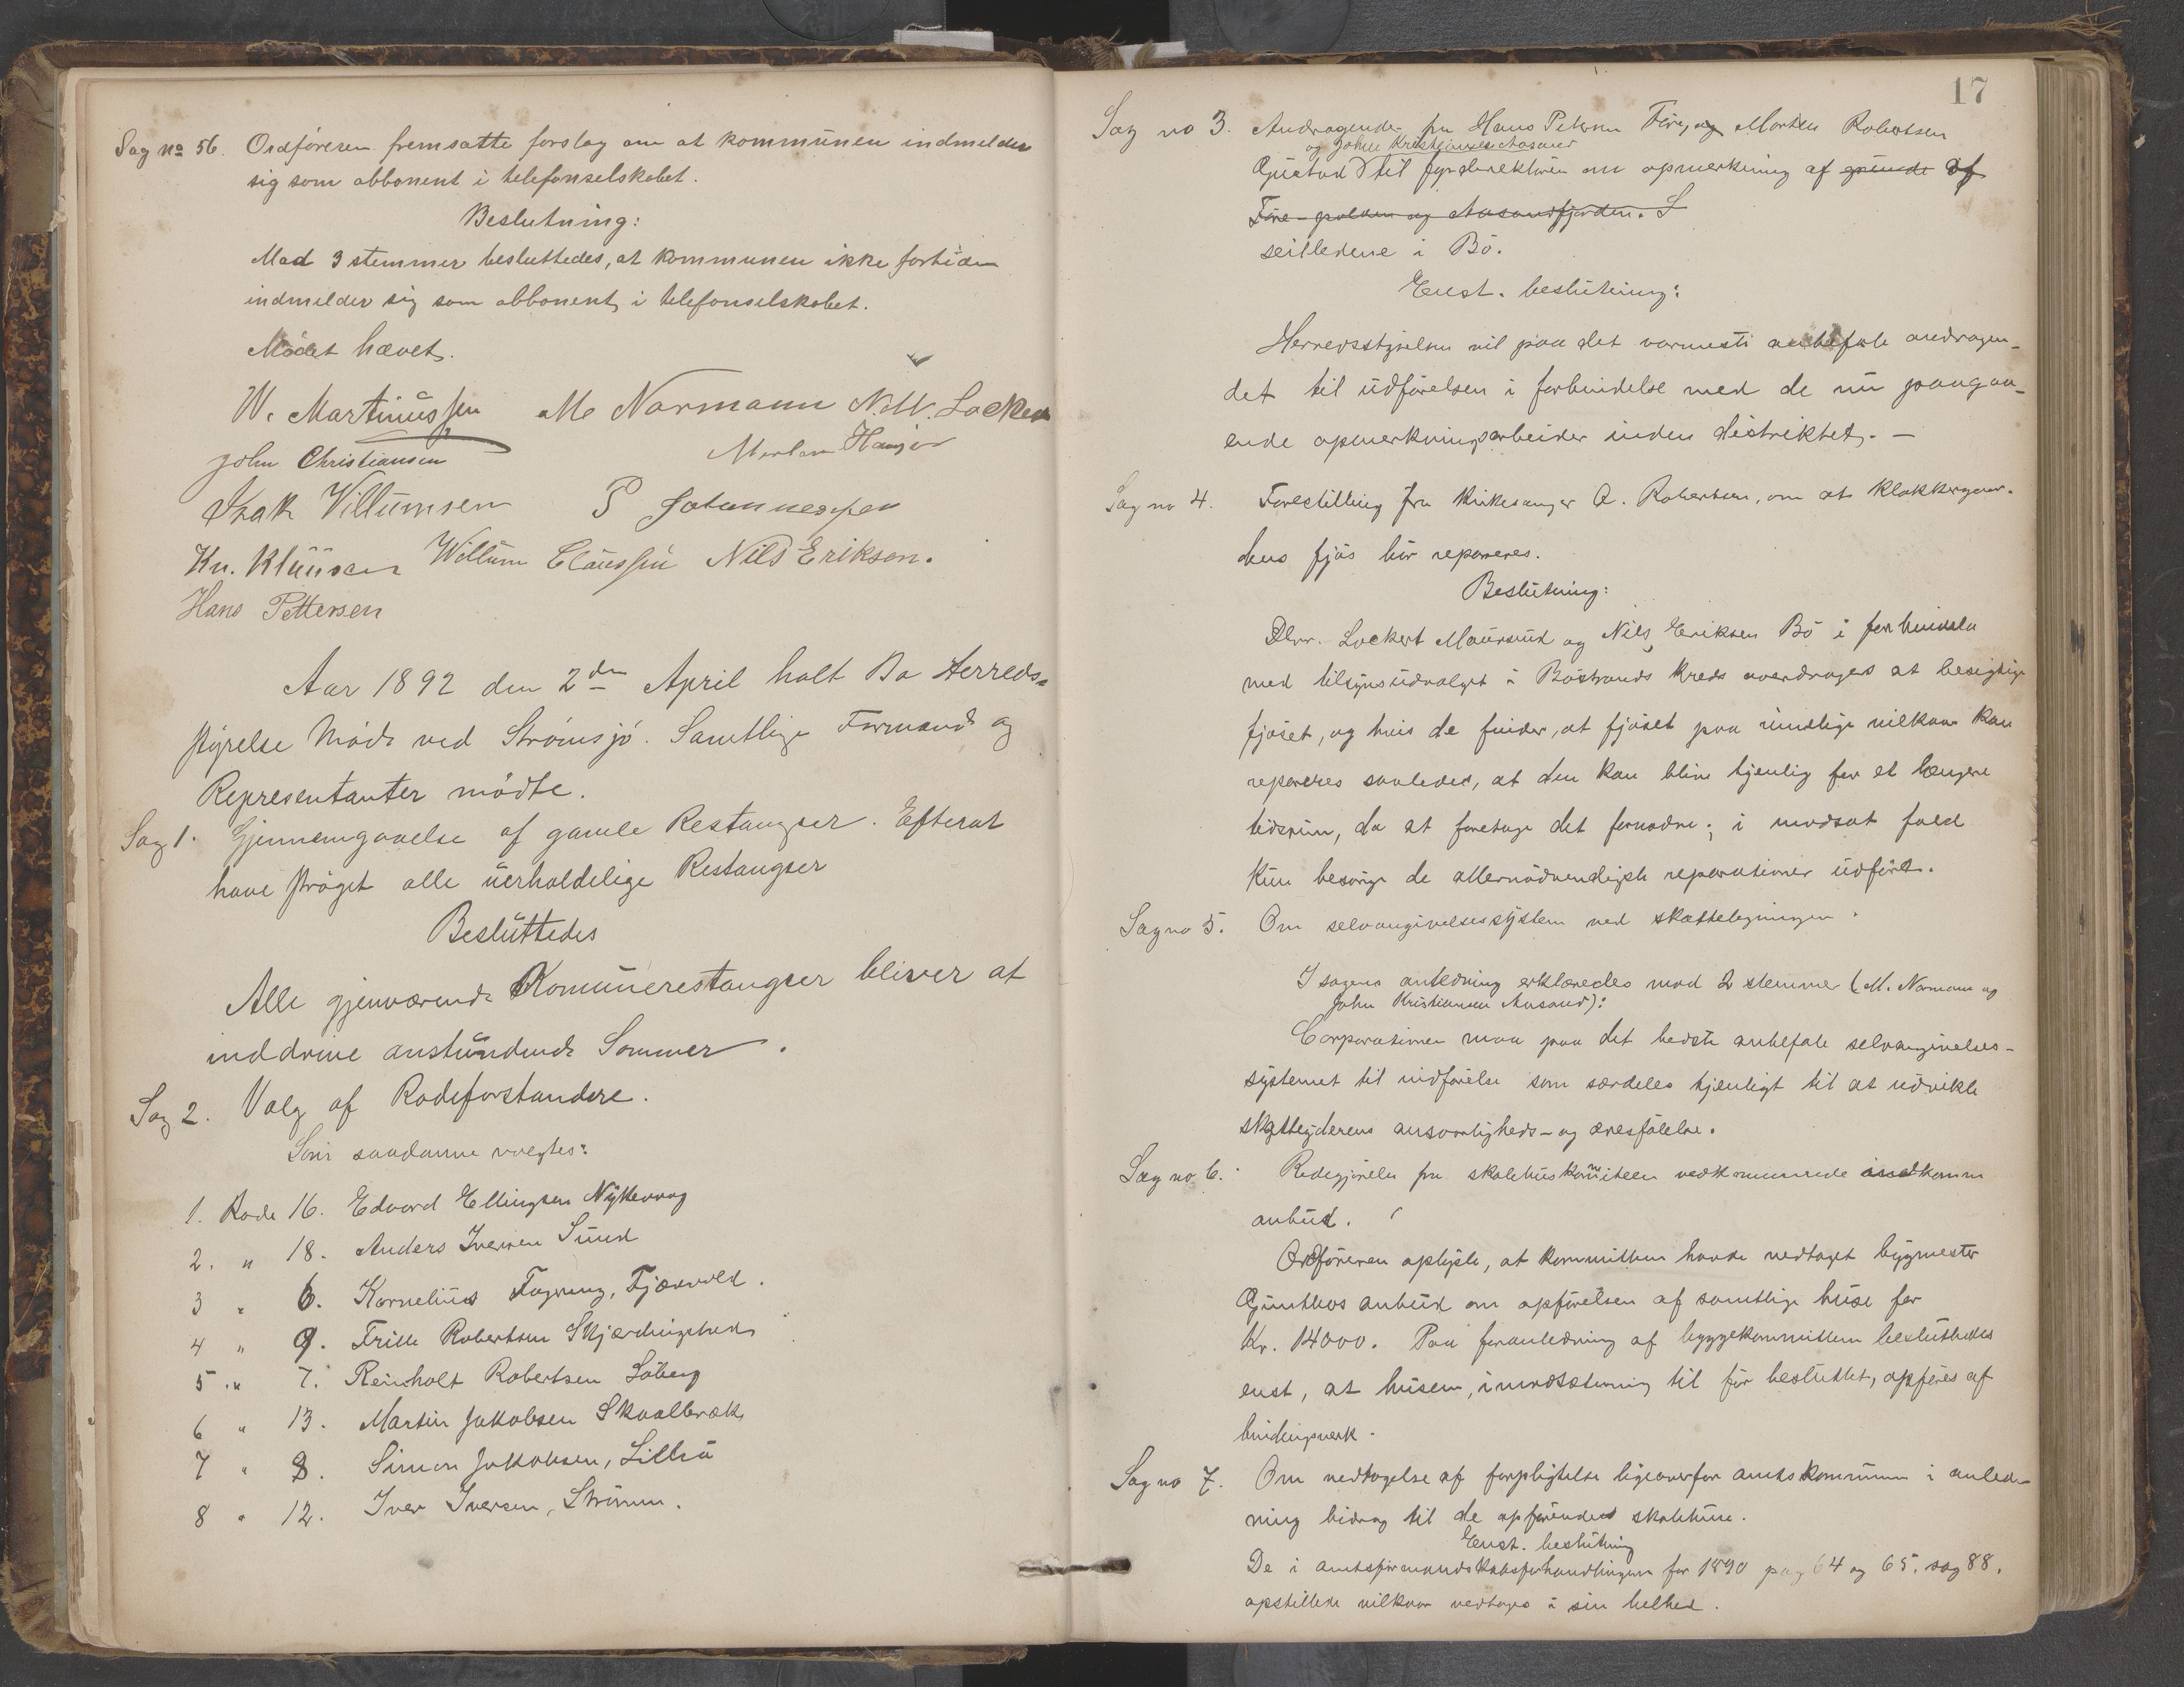 Sag no 56. Ordföreren fremsatte forslag om at kommunen indmelder
sig som abbonent i telefonselskabet.
Beslutning:
Mod 3 stemmer besluttedes, at kommunen ikke fortiden
indmelder sig som abbonent i telefonselskabet.
Mödet hævet.
W. Martinussen M Normann N. M. Lockert
John Christiansen Morten
Isak Villumsen P Johannessen
Kn. Willum Claussen Nils Eriksen.
Hans Pettersen
Aar 1892 den 2den April holt Bø Herreds-
styrelse Möde ved Strömsjö. Samtlige Formænd og
Representanter mödte.
Sag 1. Gjennemgaaelse af gamle Restangser. Efterat
have ströget alle uerholdelige Restangser
Besluttedes
Alle gjenværende Komunerestangser bliver at
inddrive anstundende Sommer.
Sag 2. Valg af Rodeforstandere.
Som saadanne valgtes:
1. Rode 16. Edvard Ellingsen Nykvaag
2. " 18. Anders Iversen Sund
3 " 6. Kornelius Fagereng, Fjærvold.
4 " 9. Robertsen Skjærdingstad
5 " 7. Reinholt Robertsen Söberg
6 " 13. Martin Jakobsen Skaalbræk
7 " 8. Simon Jakobsen,
8 " 12. Iver Iversen, Strömm.
17
Sag no 3. Andragende fra Hans Petersen Före, og Morten Robertsen
og Johan Kristiansen Aasand
til fyrdirektören om opmerkning af grunde af
Före-pollen og Aasandfjorden. S
seilledene i Bö.
Enst. beslutning:
Herredsstyrelsen vil paa det varmeste anbefale andragen-
det til udförelsen i forbindelse med de nu paagaa-
ende opmerkningsarbeider inden distriktet. -
Sag no 4. Forestilling fra kirkesanger O. Robertsen, om at klokkergaar-
dens fjös bör repareres.
Beslutning:
Lockert Maursund og Nils Eriksen Bö i forbindelse
med tilsynsudvalget i Böstrands kreds overdrages at besigtige
fjöset, og hvis de finder, at fjöset paa rimelige vilkaar kan
repareres saaledes, at den kan blive tjenlig for et længere
tidsrum, da at foretage det fornødne; i modsat fald
kun besørge de allernödvendigste reparationer udfört.
Sag no 5. Om selvangivelsessystem ved skattelegningen.
I sagens anledning erklæredes mod 2 stemmer (M. Normann og
John Kristiansen Aasand):
Corporationen maa paa det bedste anbefale selvangivelses-
systemet til indförelse som særdeles tjenligt til at udvikle
skatteyderens ansvarligheds- og æresfölelse.
Sag no 6. Redegjörelse fra skolehuskommiteen vedkommende indkomne
anbud.
Ordföreren oplyste, at kommitteen havde vedtaget bygmester
anbud om opförelsen af samtlige huse for
Kr. 14000. Paa foranledning af byggekommitteen besluttedes
enst, at husene, i modsætning til för besluttet, opföres af
bindingsverk.
Sag no 7. Om vedtagelse af forpligtelse ligeoverfor amtskommunen i anled-
ning bidrag til de opförendes skolehuse.
Enst. beslutning
De i amtsformandskabsforhandlingerne for 1890 pag 64 og 65. sag 88.
opstillede vilkaar vedtages i sin helhed.